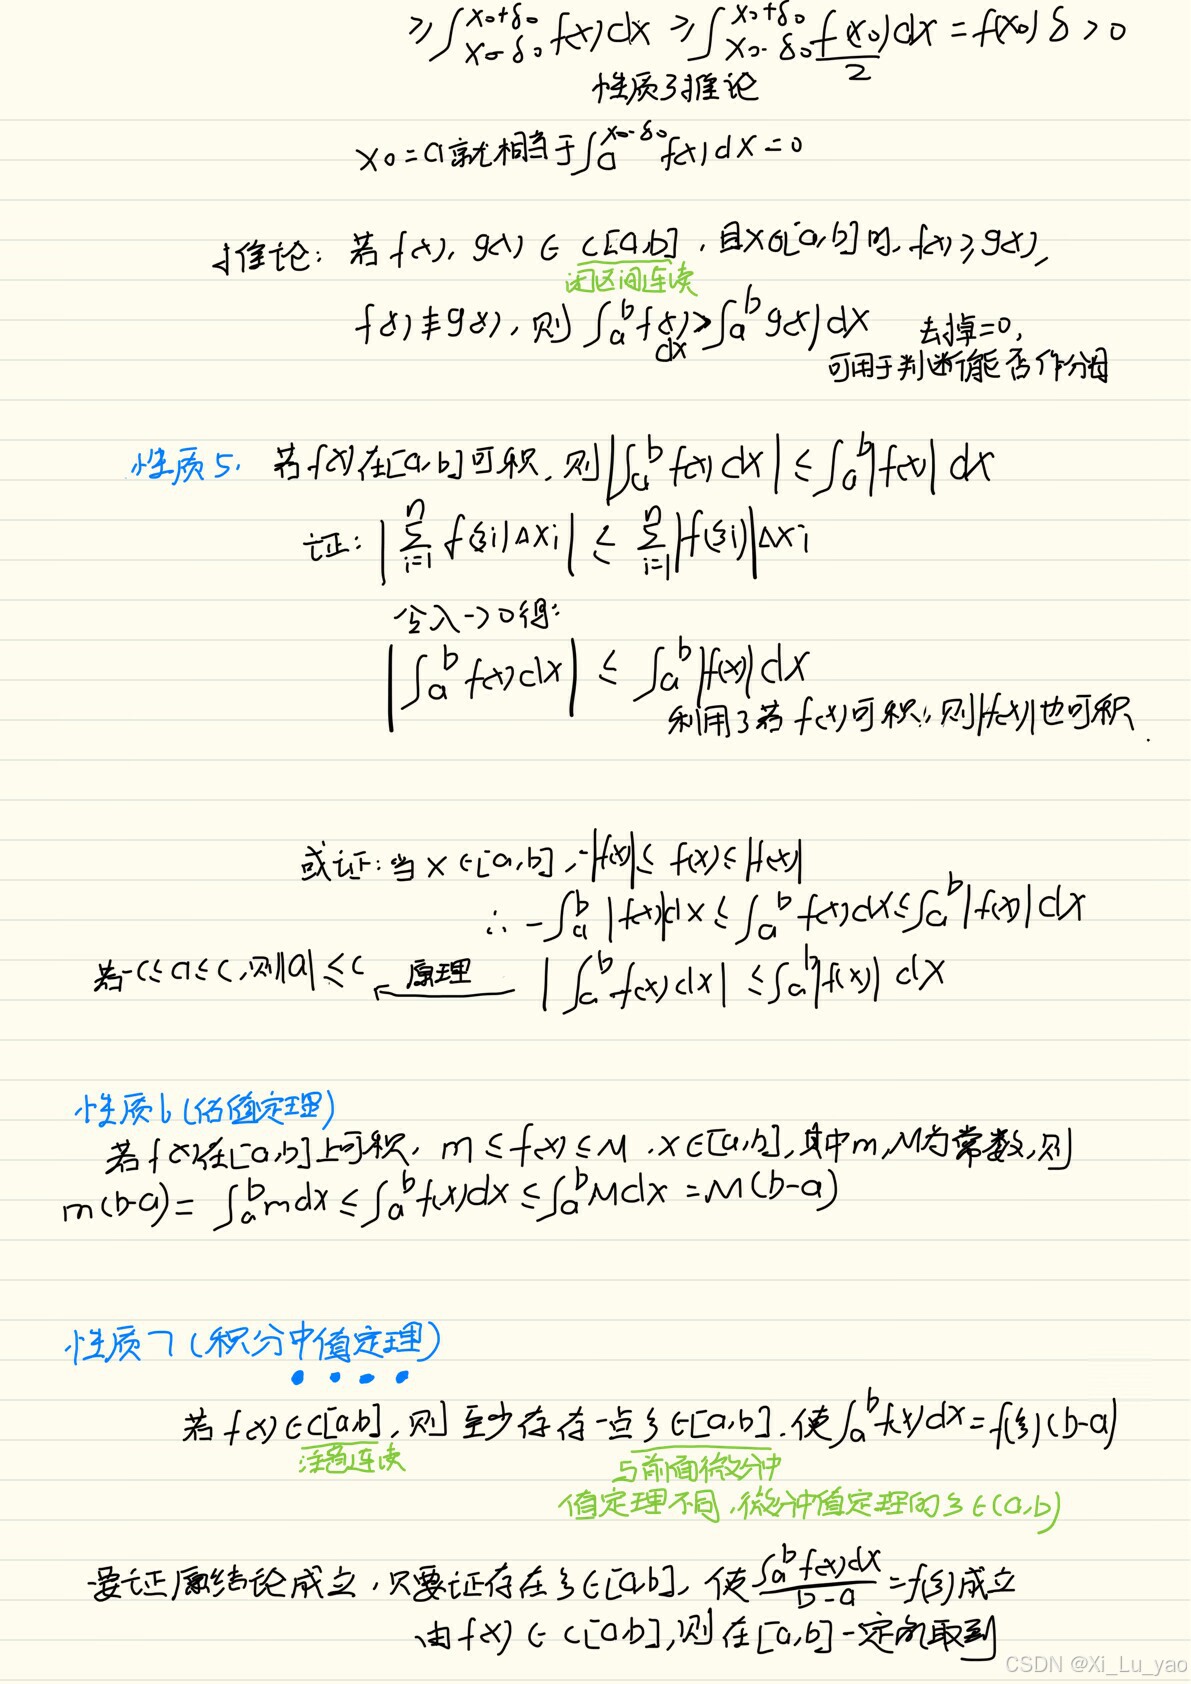 ≥∫_{x₀-δ₀}^{x₀+δ₀} f(x)dx ≥ ∫_{x₀-δ₀}^{x₀+δ₀} f(x₀)/2 dx = f(x₀)δ > 0
性质3推论
x₀=a就相当于∫_a^{x₀-δ₀} f(x)dx=0
推论: 若f(x), g(x)∈C[a,b], 且x∈[a,b]时, f(x)≥g(x),
闭区间连续
f(x)≢g(x), 则∫_a^b f(x)dx>∫_a^b g(x)dx 去掉=0,
可用于判断能否作分母
性质5. 若f(x)在[a,b]可积, 则|∫_a^b f(x)dx|≤∫_a^b|f(x)|dx
证: |∑_{i=1}^n f(ξi)Δxi| ≤ ∑_{i=1}^n|f(ξi)|Δxi
令λ->0得:
|∫_a^b f(x)dx| ≤ ∫_a^b|f(x)|dx
利用了若f(x)可积, 则|f(x)|也可积.
或证: 当x∈[a,b], -|f(x)|≤f(x)≤|f(x)|
∴ -∫_a^b|f(x)|dx≤∫_a^b f(x)dx≤∫_a^b|f(x)|dx
若-c≤a≤c, 则|a|≤c ← 原理 |∫_a^b f(x)dx|≤∫_a^b|f(x)|dx
性质6(估值定理)
若f(x)在[a,b]上可积, m≤f(x)≤M, x∈[a,b], 其中m,M为常数, 则
m(b-a)=∫_a^b mdx≤∫_a^b f(x)dx≤∫_a^b Mdx=M(b-a)
性质7(积分中值定理)
若f(x)∈C[a,b], 则至少存在一点ξ∈[a,b], 使∫_a^b f(x)dx=f(ξ)(b-a)
注意连续 与前面微分中
值定理不同, 微分中值定理的ξ∈(a,b)
要证原结论成立, 只要证存在ξ∈[a,b], 使∫_a^b f(x)dx/(b-a)=f(ξ)成立
由f(x)∈C[a,b], 则在[a,b]一定能取到
CSDN @Xi_Lu_yao